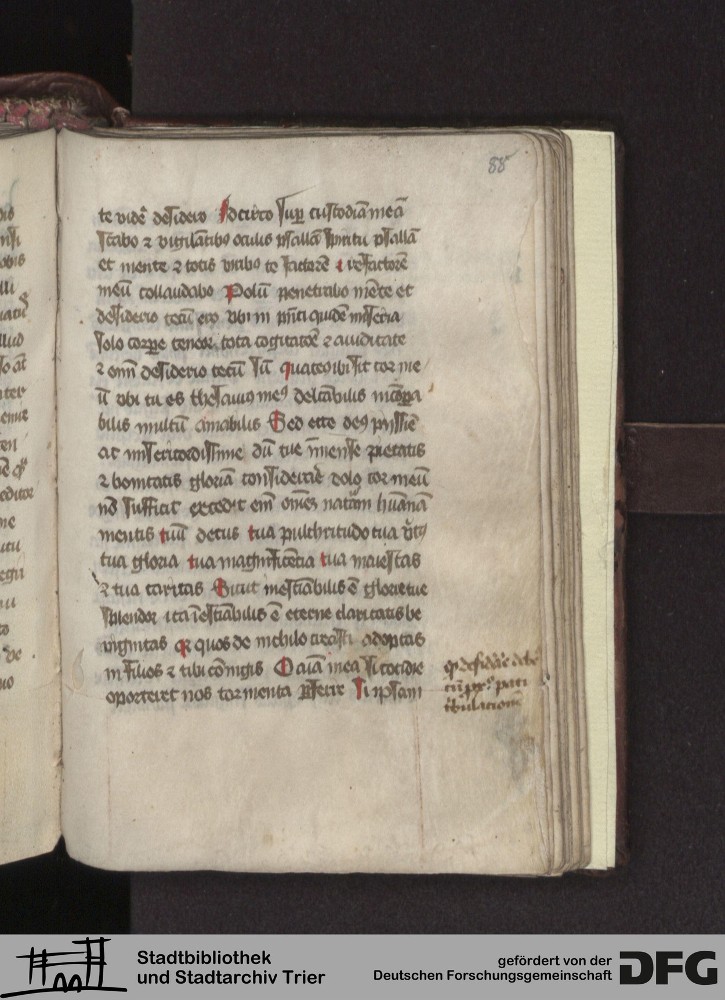 88
te vidē desidero Idcirco sup custodiā meā
stabo ⁊ vigilātibꝰ oculis psallā spiritu psallā
et mente ⁊ totis viribꝰ te factorē ⁊ refactorē
meū collaudabo Polū penetrabo mēte et
desiderio tecū ero vbi in pn̄ti quidē miseria
solo corpe teneor tota cogitatōe ⁊ auiditate
⁊ omī desiderio tecū sū quateꝰ ibi sit cor me
ū vbi tu es thesaurꝰ meꝰ delcābilis incōpa
bilis multū amabilis Sed ecce deꝰ pijssīe
ac misericordissime dū tue īmense pietatis
⁊ bonitatis gloriā considerare volo cor meū
nō sufficit excedit eīm om̄ez naturām huānā
mentis tuū decus tua pulchritudo tua v̓tꝰ
tua gloria tua magnificētia tua maiestas
⁊ tua caritas Sicut inestīabilis ē glorie tue
splendor ita īestīabilis ē eterne claritatis be
nignitas qr quos de nichilo creasti adoptas
in filios ⁊ tibi cōiūgis O aīa mea si cotidie
oporteret nos tormenta pferre Si ipsam
pati
tribulacionē
Stadtbibliothek
und Stadtarchiv Trier
gefördert von der
Deutschen Forschungsgemeinschaft
DFG